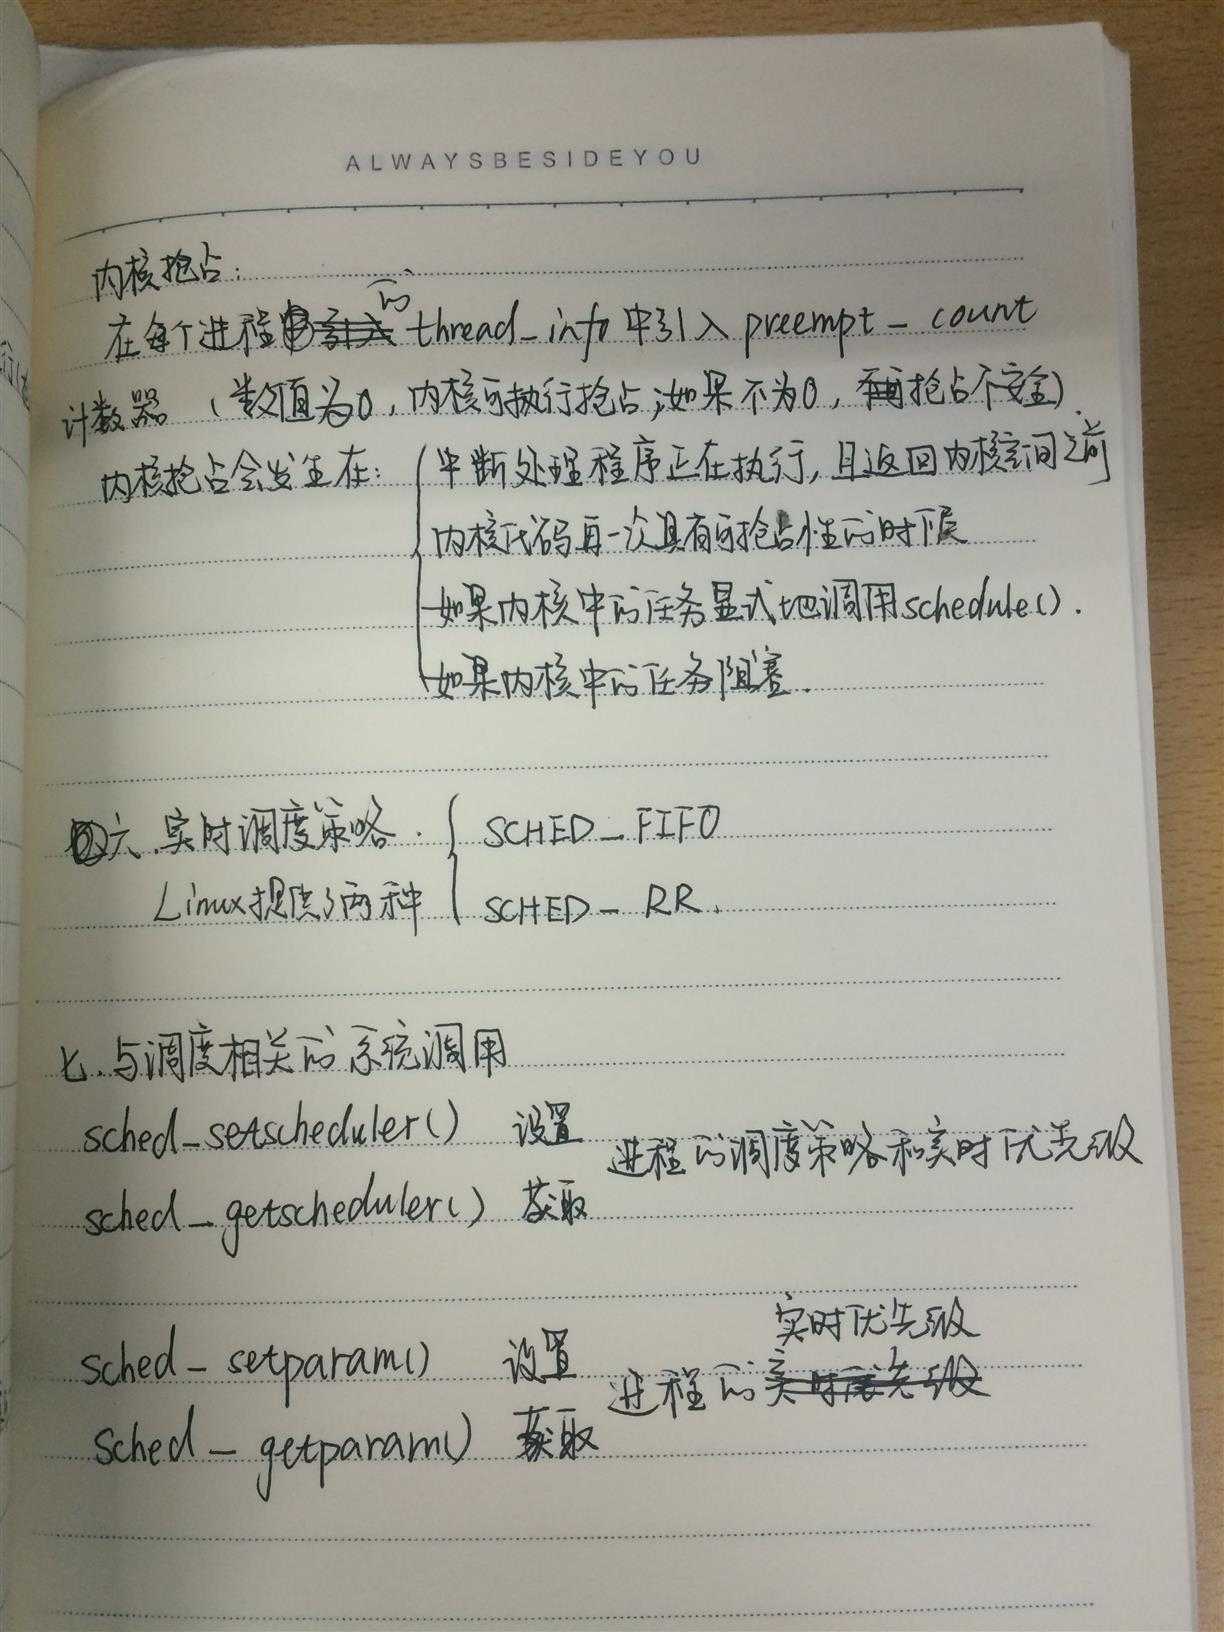 ALWAYSBESIDEYOU
内核抢占:
在每个进程的thread_info中引入preempt_count
计数器（数值为0，内核可执行抢占;如果不为0，抢占不安全）.
内核抢占会发生在:
中断处理程序正在执行,且返回内核空间之前
内核代码再一次具有可抢占性的时候
如果内核中的任务显式地调用schedule().
如果内核中的任务阻塞.
六.实时调度策略.
Linux提供了两种
SCHED_FIFO
SCHED_RR.
七.与调度相关的系统调用
sched_setscheduler() 设置
进程的调度策略和实时优先级
sched_getscheduler() 获取
实时优先级
sched_setparam() 设置
进程的
sched_getparam() 获取